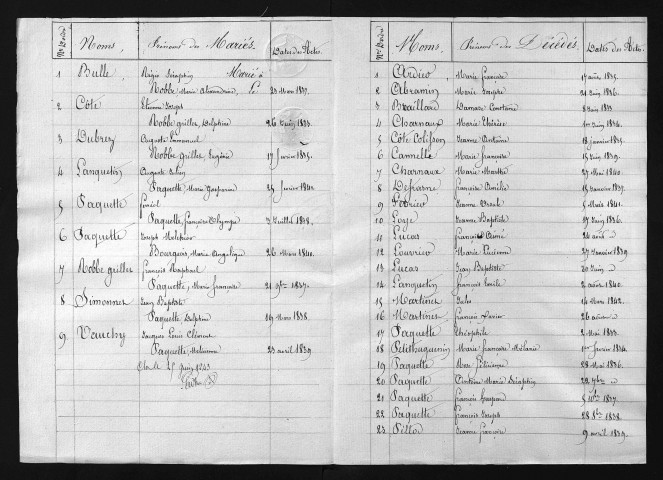 Nos d'Ordre Noms, Prénoms des Mariés. Dates des Actes.
1 Bulle, Régis Séraphin Marié à
Nobbe, Marie Alexandrine, Le 23 Mars 1837.
2 Côte Étienne Joseph
Nobbe grillet, Delphine 26 Juin 1833.
3 Dubrez Auguste Emmanuel
Nobbe grillet, Eugénie 17 février 1835.
4 Languetin Auguste
Paquette, Marie Gasparine 25 février 1840.
5 Paquette
Paquette, françoise Olympe 3 Juillet 1838.
6 Paquette Joseph Melchior
Bourgeois, Marie Angélique 26 Mars 1840.
7 Nobbe grillet françois Raphael
Paquette, Marie françoise 21 9bre 1837.
8 Simonnet Jean Baptiste
Paquette, Delphine 19 Mars 1838.
9 Vauchy Jacques Louis Clément
Paquette, Mélanie 23 avril 1839
Clos le 25 Juin 1843
Nos d'Ordre Noms, Prénoms des Décédés. Dates des Actes.
1 Ardiet Marie françoise 17 août 1835.
2 Abramin Marie Josephe 21 Juin 1836.
3 Braillard Damase Constance 8 Juin 1833.
4 Charnaux Marie Thérèse 1er Juin 1834.
5 Côte Colisson Jeanne Antoine 18 Janvier 1835.
6 Camelle Marie françoise 15 Juin 1839.
7 Charnaux Marie Marthe 27 Mai 1840.
8 Déparse françoise Emilie 15 Janvier 1837.
9 février Jeanne Ursule 5 Mars 1841.
10 Loye Jeanne Baptiste 27 Juin 1836.
11 Lucas françois Aimé 26 août d°
12 Louvrier Marie 27 Janvier 1839.
13 Lucas Jean Baptiste 20 Juin d°
14 Languetin françois Emile 2 août 1840.
15 Martinez Jules 14 Mars 1842.
16 Martinez françois Xavier 26 août d°
17 Paquette Théophile 2 Mai 1833.
18 Petithuguenin Marie françoise Mélanie 1er février 1834.
19 Paquette Rose Félicienne 28 Mai 1836.
20 Paquette Marie Séraphine 20 7bre d°
21 Paquette françois Gaspard 5 10bre 1837.
22 Paquette françois Joseph 28 8bre 1838.
23 Pillod Jeanne françoise 9 avril 1839.